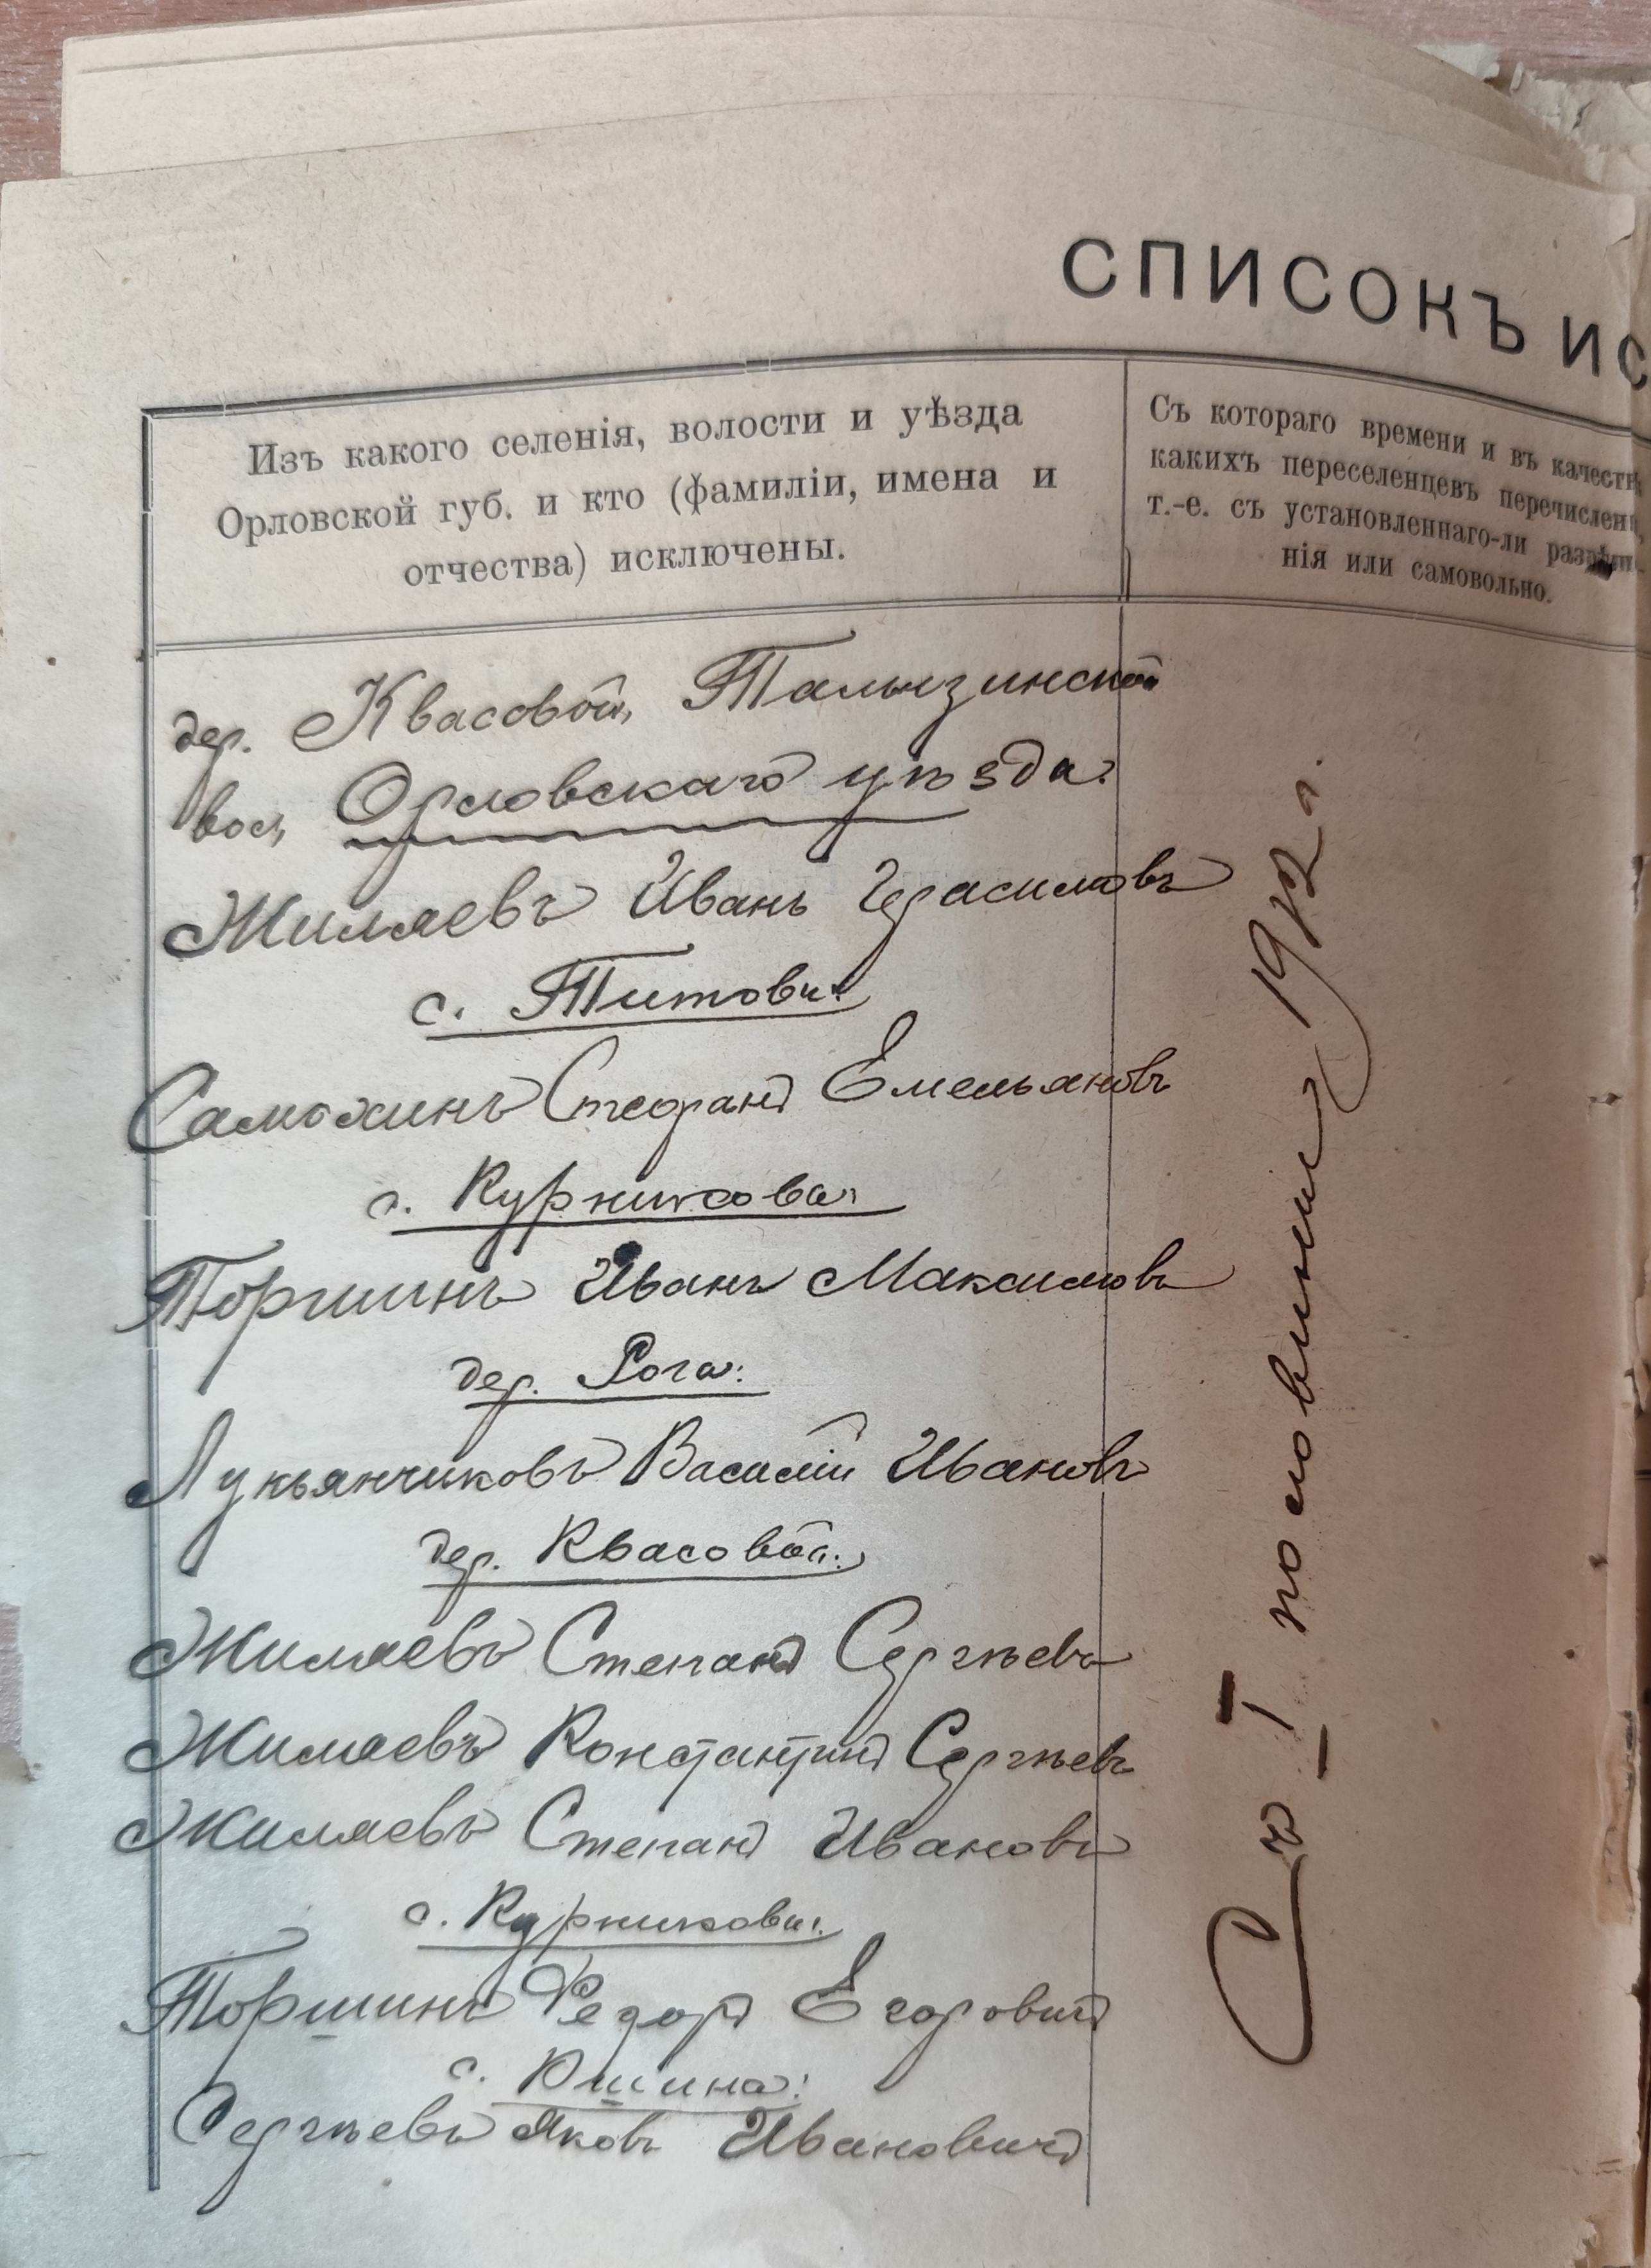 СПИСОКЪ ИС
Изъ какого селенія, волости и уѣзда
Орловской губ. и кто (фамиліи, имена и
отчества) исключены.
Съ котораго времени и въ качествѣ
какихъ переселенцевъ перечислены,
т.-е. съ установленнаго-ли разрѣше-
нія или самовольно.
дер. Квасовой, Талызинской
вол, Орловскаго уѣзда:
Жиляевъ Иванъ Герасимовъ
с. Титова:
Самохинъ Стефанъ Емельяновъ
с. Курникова:
Торшинъ Иванъ Максимовъ
дер. Рога:
Лукьянчиковъ Василій Ивановъ
дер. Квасовой:
Жиляевъ Степанъ Сергѣевъ
Жиляевъ Константинъ Сергѣевъ
Жиляевъ Степанъ Ивановъ
с. Курникова:
Торшинъ Федоръ Егоровичъ
с. Кшина:
Сергѣевъ Яковъ Ивановичъ
Съ I половины 1912 г.